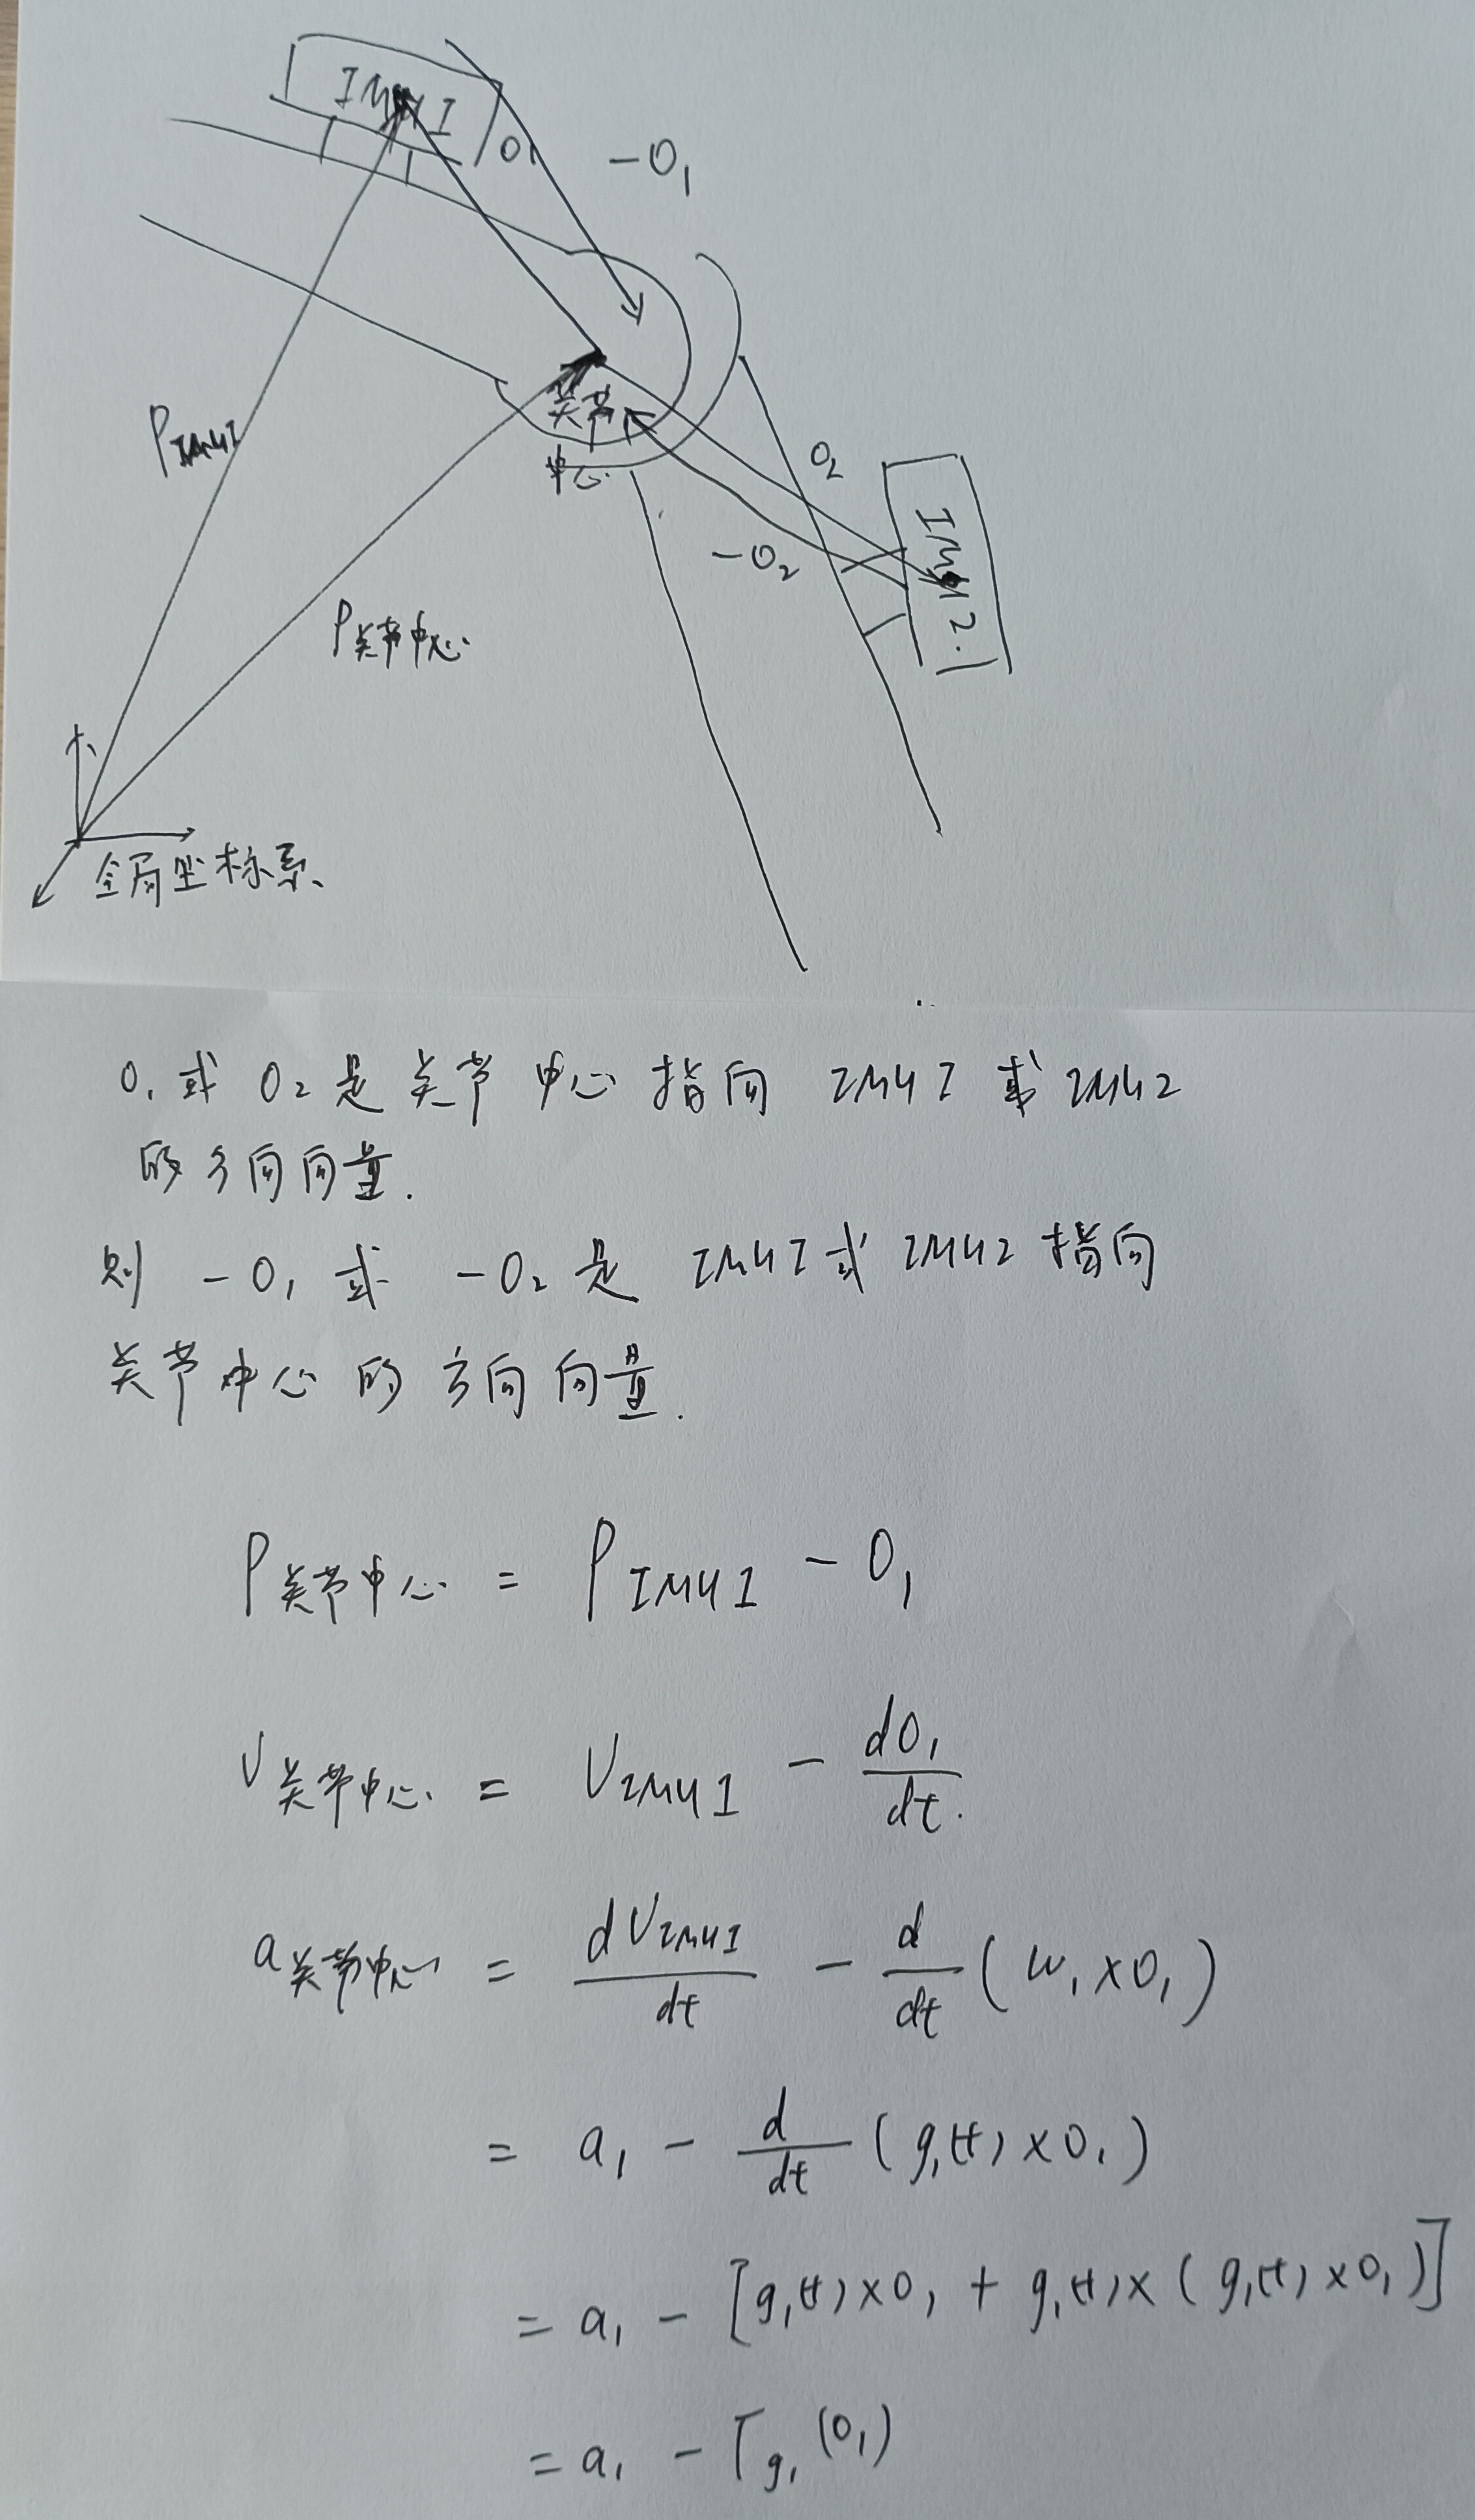 IMU1
O₁
-O₁
P_IMU1
关节
中心
O₂
-O₂
IMU2
P_关节中心
全局坐标系
O₁或O₂是关节中心指向 IMU1或IMU2
的方向向量.
则 -O₁或 -O₂是 IMU1或IMU2指向
关节中心的方向向量.
P_关节中心 = P_IMU1 - O₁
V_关节中心 = V_IMU1 - dO₁/dt.
a_关节中心 = dV_IMU1/dt - d/dt (w₁×O₁)
= a₁ - d/dt (g₁(t)×O₁)
= a₁ - [g₁(t)×O₁ + g₁(t)×(g₁(t)×O₁)]
= a₁ - Γ_g₁(O₁)